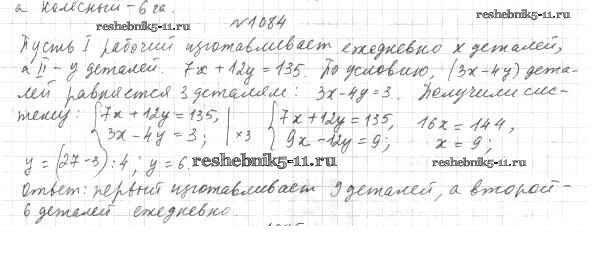 а колёсный - 6 га.
reshebnik5-11.ru
№1084
reshebnik5-11.ru
Пусть I рабочий изготавливает ежедневно x деталей,
а II - y деталей. 7x + 12y = 135. По условию, (3x - 4y) дета-
лей равняется 3 деталям: 3x - 4y = 3. Получили сис-
тему: { 7x + 12y = 135, 3x - 4y = 3; | ×3 { 7x + 12y = 135, 9x - 12y = 9; 16x = 144, x = 9;
y = (27 - 3) : 4; y = 6.
reshebnik5-11.ru
reshebnik5-11.ru
Ответ: первый изготавливает 9 деталей, а второй -
6 деталей ежедневно.